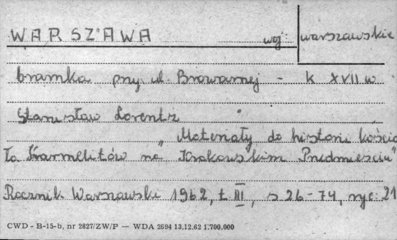 WARSZAWA woj. warszawskie
bramka przy ul. Browarnej - k XVII w.
Stanisław Lorentz
"Materiały do historii kościo
ła Karmelitów na Krakowskim Przedmieściu"
Rocznik Warszawski 1962, t. III, s 26-74, ryc. 21
CWD - B-15-b, nr 2827/ZW/P — WDA 2604 13.12.62 1.700.000